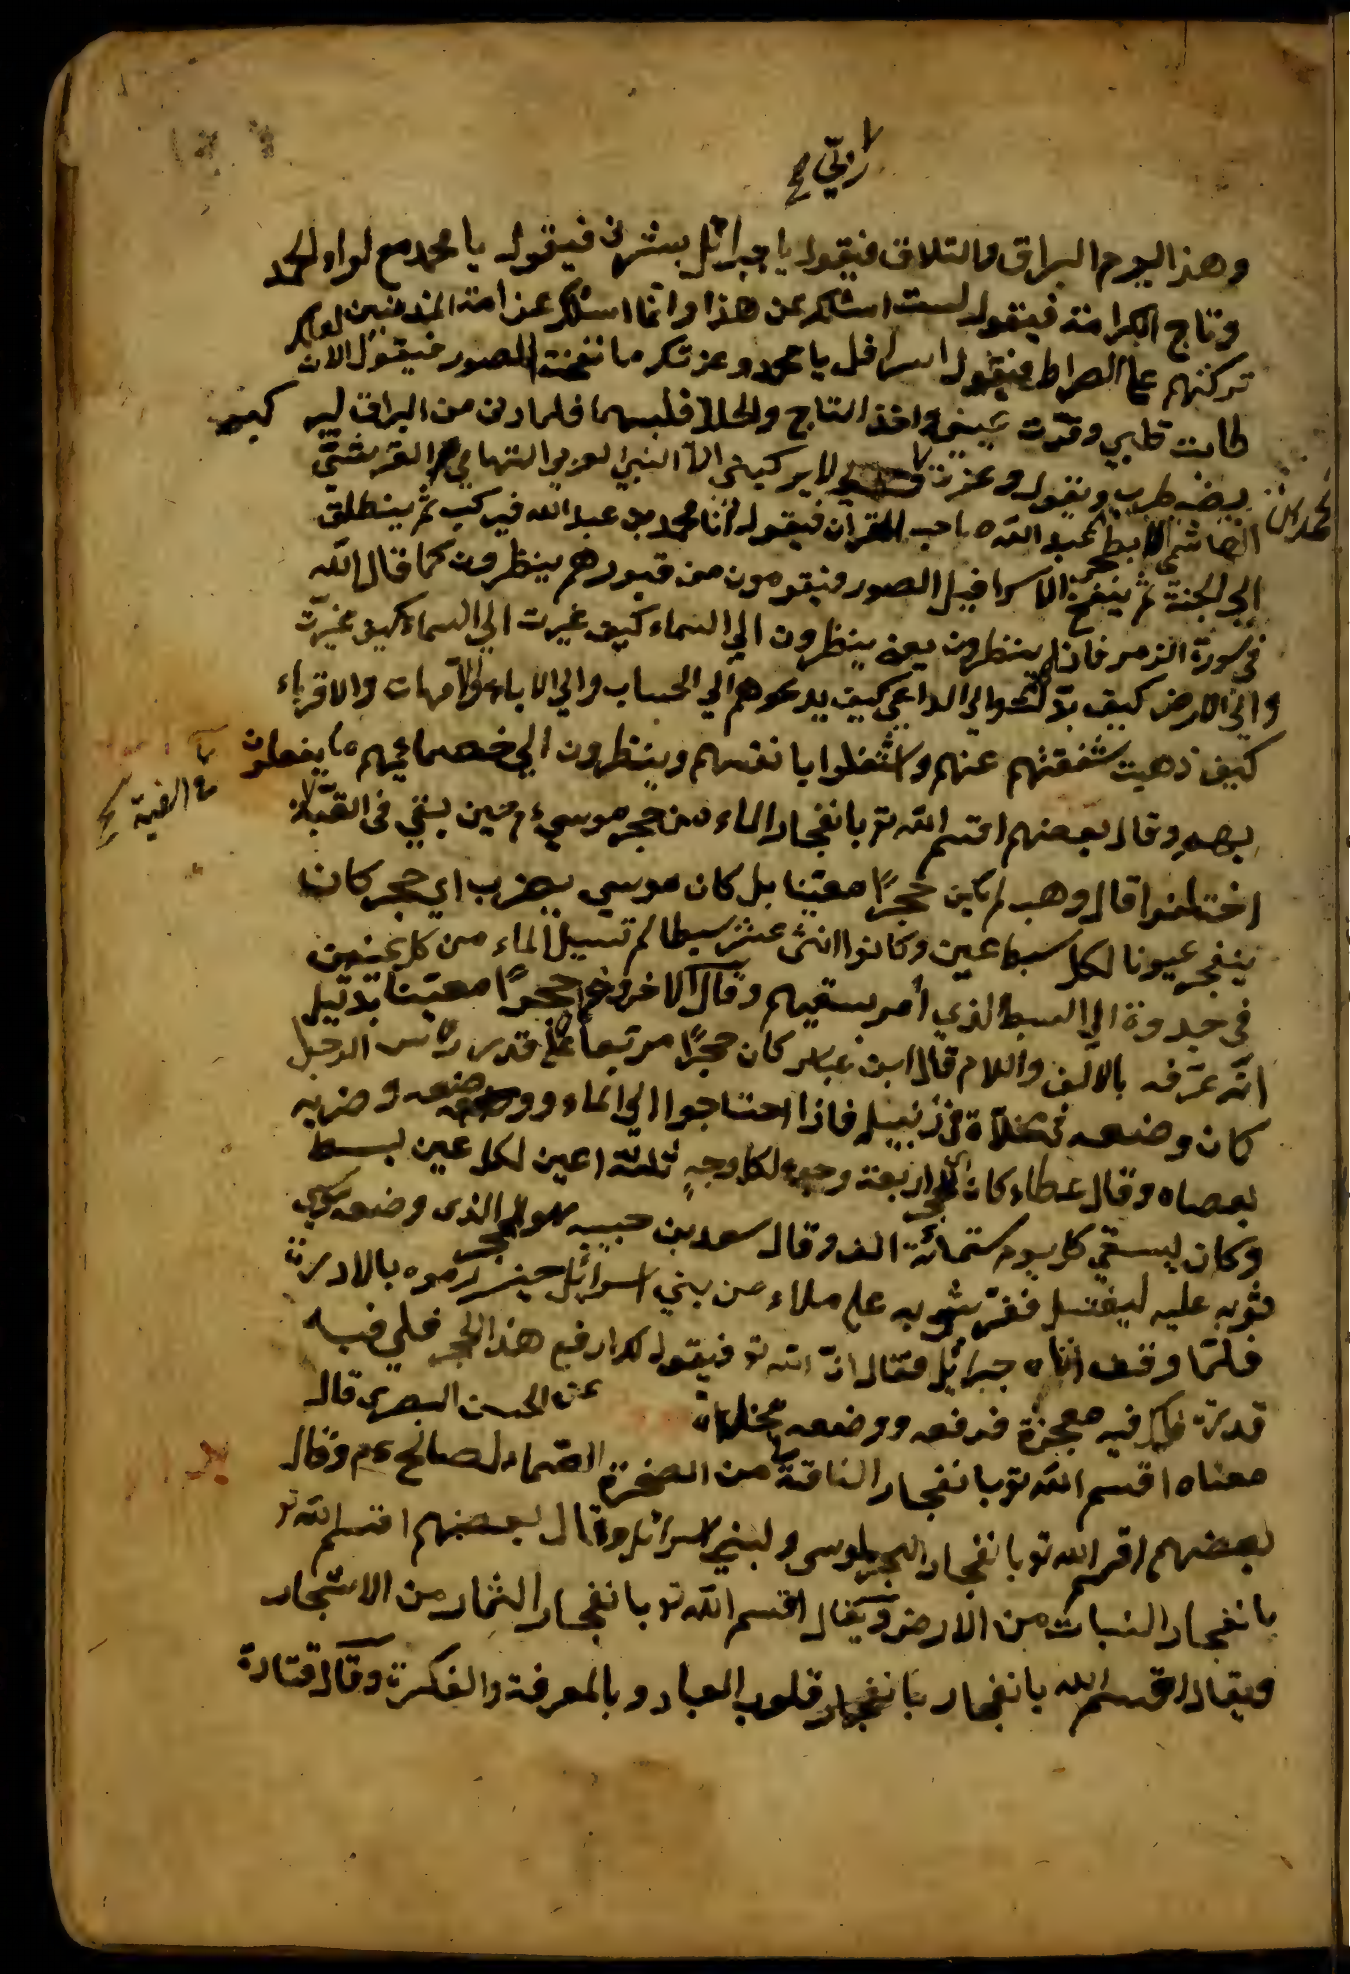 وهذا اليوم البراق والتلاق فيقول يا جبرائل بشرني فيقول يا محمد مع لواء الحمد
وتاج الكرامة فيقول لست اسئلك عن هذا وانما اسئلك عن امة المذنبين لعلك
تركتهم على الصراط فيقول اسرافل يا محمد وعزتك ما نفخت الصور فيقول الان
طابت قلبي وقرّت عيني واخذ التاج والحلة فلبسها فلما دنى من البراق ليركب
يضطرب ويقول وعزة لا يركبني الا النبي العربي التهامي القرشيّ
الهاشمي الابطحي محمد بن عبد الله صاحب القرآن فيقول انا محمد بن عبد الله فيركب ثم ينطلق
الي الجنة ثم ينفخ الاسرافيل الصور فيقومون من قبورهم ينظرون كما قال الله
في سورة الزمر فاذا هم ينظرون يعني ينظرون الي السماء كيف غيرت الي السماء كيف غيّرت
والي الارض كيف بدّلت والي الداعي كيف يدعوهم الي الحساب والي الاباء والامهات والاقرباء
كيف ذهبت شفقتهم عنهم واشتغلوا بانفسهم وينظرون الي خصمائهم ما يفعلون
بهم وقال بعضهم اقسم الله تع بانفجار الماء من حجر موسي ع م حين بقي في
اختلفوا قال وهب لم يكن حجرًا معيّنا بل كان موسي يضرب اي حجر كان
ينفجر عيونا لكل سبط عين وكانوا اثنى عشر سبطا ثم تسيل الماء من كل عين
في جدوة الي السبط الذي أمر بسقيهم وقال الاخرون حجرًا معيّنا بدليل
انّه عرّفه بالالف واللام قال ابن عباس كان حجرًا مربّعا على قدر رأس الرجل
كان وضعه في مخلاة في زنبيل فاذا احتاجوا الي الماء ووضعه وضربه
بعصاه وقال عطاء كان للحجر اربعة وجوه لكل وجهٍ ثلثة اعين لكل عين بسط
وكان يسقي كل يوم ستمائة الف وقال سعد بن جبير هو الحجر الذي وضع موسي
ثوبه عليه ليغتسل ففرّ بثوبه على ملاء من بني اسرائل حين رموه بالادرة
فلمّا وقف اتاه جبرائل فقال انّ الله تع فيقول لك ارفع هذا الحجر فلي فيه
قدرة ولك فيه معجزة فرفعه ووضعه بمخلاة عن الحسن البصري قال
معناه اقسم الله تع بانفجار الناقة من الصخرة الصّماء لصالح ع م وقال
بعضهم اقسم الله تع بانفجار البحر لموسى ولبني اسرائل وقال بعضهم اقسم الله تع
بانفجار النبات من الارض ويقال اقسم الله تع بانفجار الثمار من الاشجار
ويقال اقسم الله بانفجار بانفجار قلوب العباد وبالمعرفة والفكرة وقال قتادة